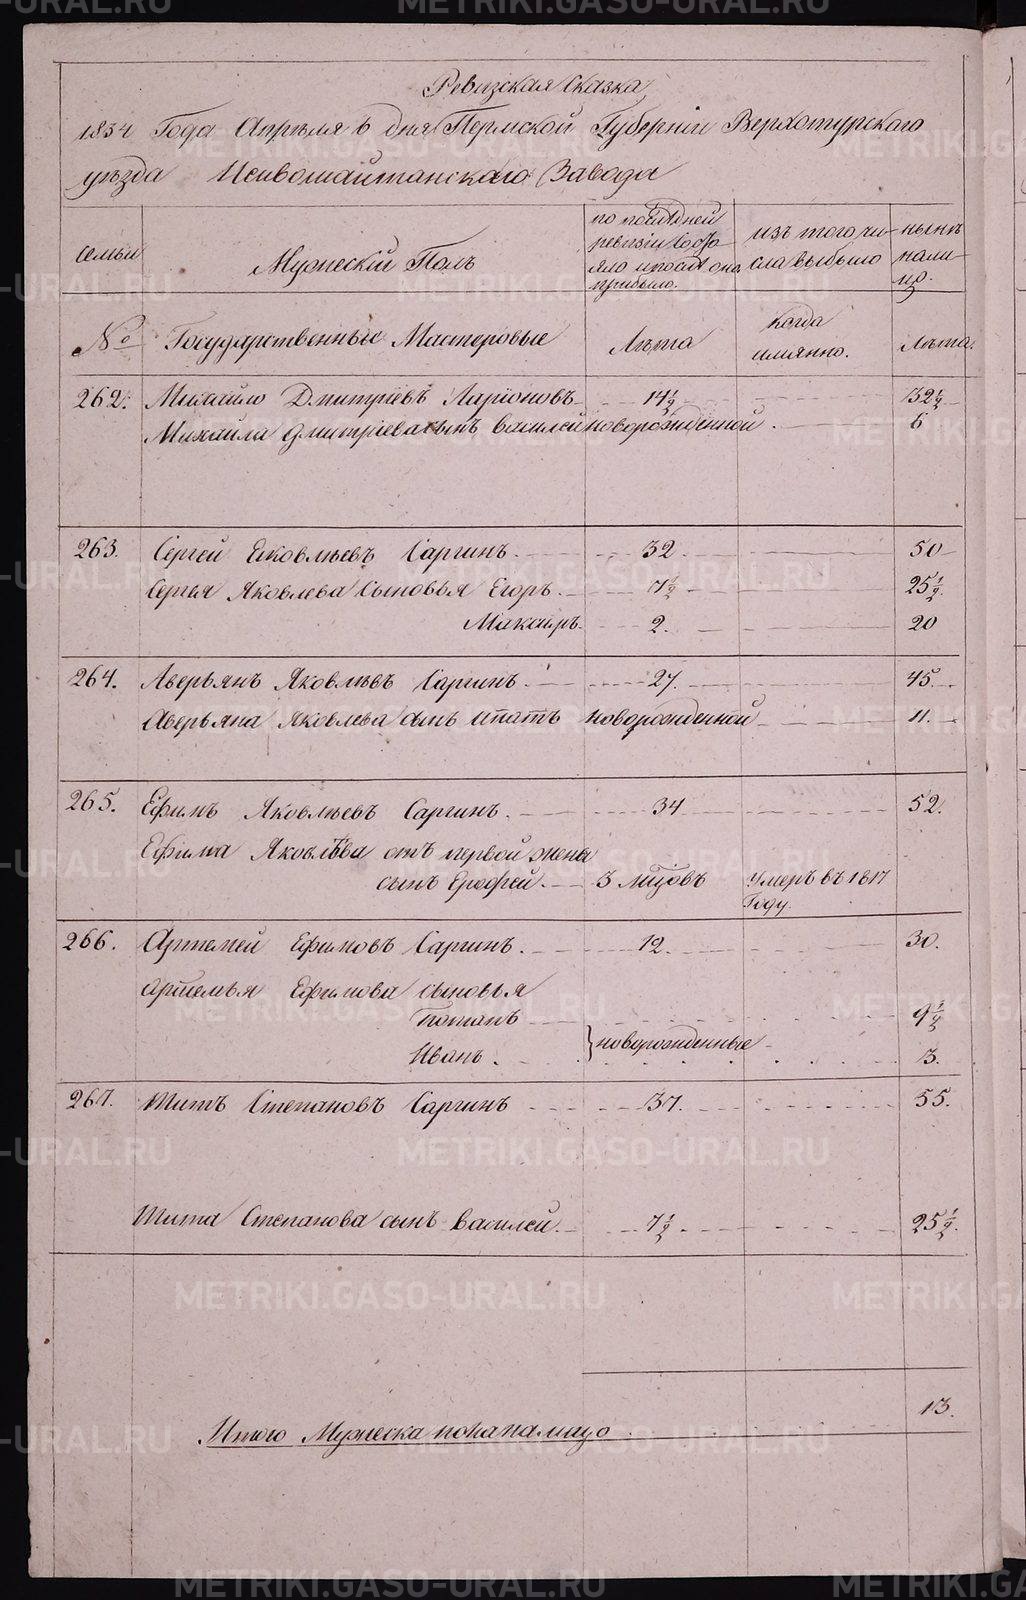 Ревизская Сказка
1834 Года Апреля 6 дня Пермской Губернiи Верхотурского
уезда Невьшайтанского Завода
семьи
Мужескiй Полъ
по последней ревизiи состояло и после она прибыло.
изъ того числа выбыло
ныне налицо.
№ Государственные Мастеровые Лета когда имянно. Лета.
262. Михайло Дмитрiевъ Ларiоновъ 14½ 32½
Михайла Дмитрiева сынъ Василей новорожденной 6
263. Сергей Яковлевъ Саргинъ 32 50
Сергея Яковлева Сыновья Егоръ 7½ 25½
Макаръ 2. 20
264. Аверьянъ Яковлевъ Саргинъ 27. 45
Аверьяна Яковлева сынъ Ипатъ новорожденной 11.
265. Ефимъ Яковлевъ Саргинъ. 34 52.
Ефима Яковлева отъ первой жены
сынъ Ерофей. 3 мцовъ умеръ въ 1817
Году.
266. Артемей Ефимовъ Саргинъ. 12. 30.
Артемья Ефимова сыновья
Потапъ 9½
Иванъ. } новорожденные 3.
267. Титъ Степановъ Саргинъ 37. 55.
Тита Степанова сынъ Василей 7½ 25½
Итого Мужеска пола на лицо 13.
METRIKI.GASO-URAL.RU